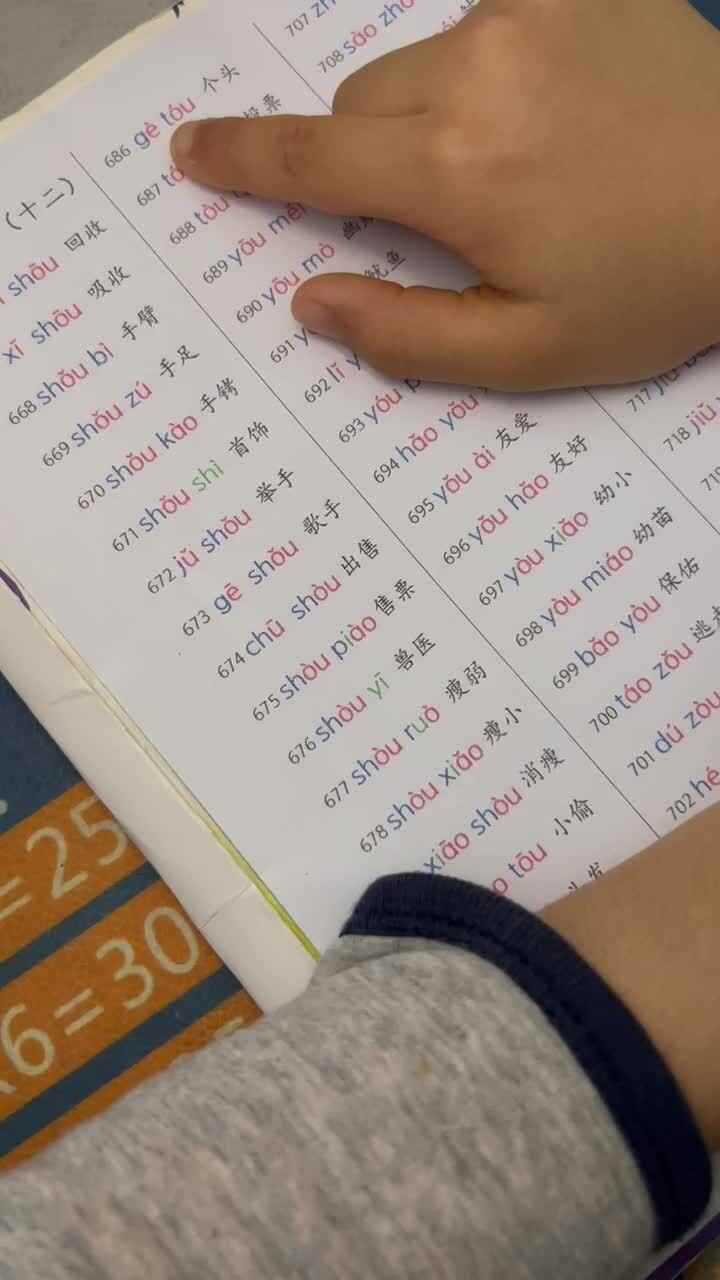 （十二）
shōu 回收
xī shōu 吸收
668 shǒu bì 手臂
669 shǒu zú 手足
670 shǒu kào 手铐
671 shǒu shì 首饰
672 jǔ shǒu 举手
673 gē shǒu 歌手
674 chū shòu 出售
675 shòu piào 售票
676 shòu yī 兽医
677 shòu ruò 瘦弱
678 shòu xiǎo 瘦小
xiāo shòu 消瘦
tōu 小偷
686 gè tóu 个头
687 投票
688 tòu
689 yōu měi
690 yōu mò
691 鱿鱼
692 lǐ
693 yóu
694 hǎo yǒu
695 yǒu ài 友爱
696 yǒu hǎo 友好
697 yòu xiǎo 幼小
698 yòu miáo 幼苗
699 bǎo yòu 保佑
700 táo zǒu 逃
701 dú zòu
702 hé
707 zh
708 sǎo zh
717 jiǔ
718 jiǔ
=25
6=30